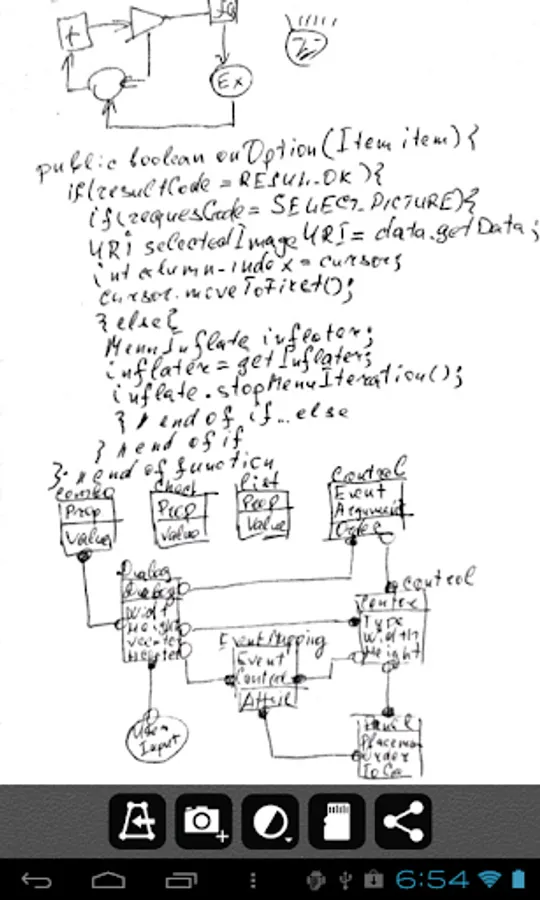 +
Ex
public boolean onOption(Item item){
if(resultCode = RESUL_OK){
if(requesCode = SELECT_PICTURE){
URI selectedImageURI = data.getData;
int column-index = cursor;
cursor.moveToFirst();
} else{
MenuInflate inflater;
inflater = getInflater;
inflate.stopMenuIteration();
} // end of if...else
} // end of if
}. // end of function
Combo Check List Control
Prop Prop Prop Event
Value Value Value Argument
Order
Dialog
Dialog
Control
Width
Height
Type
Width
Height
EventMapping
Event
Control
Attrib
User
Input
Panel
Placemen
Order
6:54